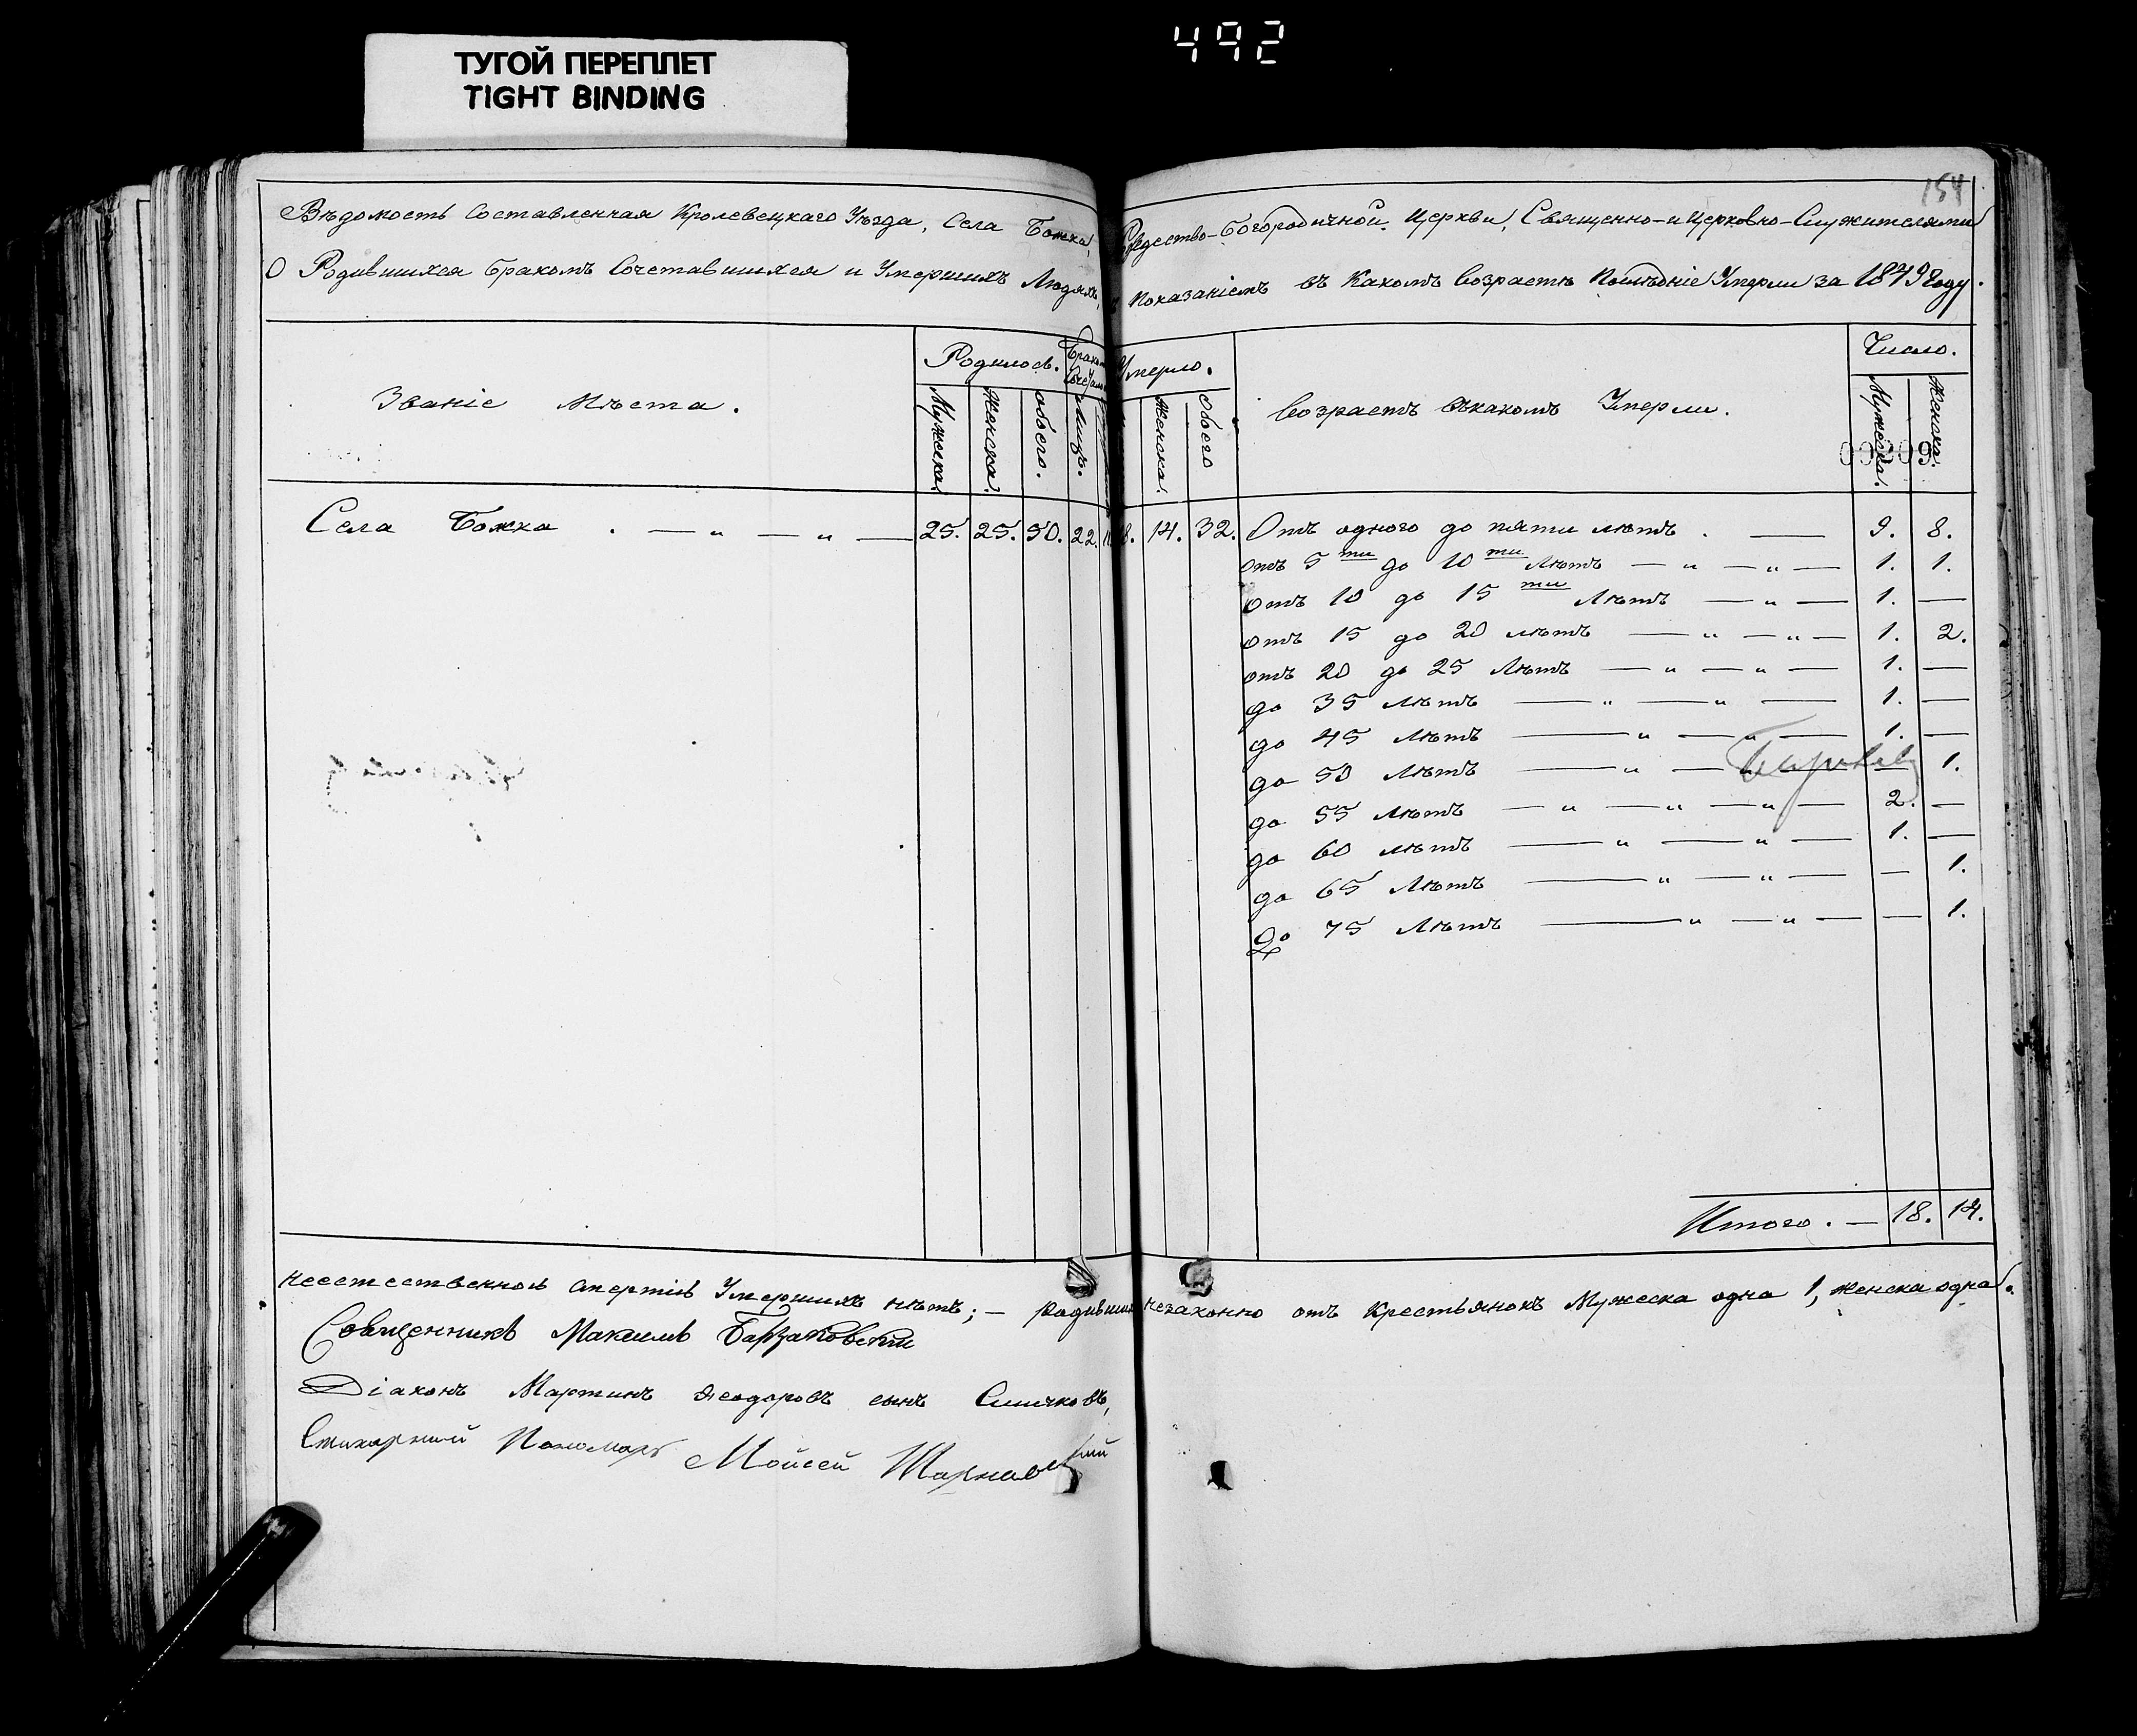 492
ТУГОЙ ПЕРЕПЛЕТ
TIGHT BINDING
154
Вѣдомость Составленная Кролевецкаго Уѣзда, Села Божка, Рождество-Богородичной Церкви, Священно-и Церковно-Служителями
О Родившихся бракомъ Сочетавшихся и Умершихъ Людяхъ, показаніемъ въ Какомъ возрастѣ Послѣдніе Умерли за 1879 году.
Званіе Мѣста.
Родилось.
Мужеска.
Женска.
обоего.
Лицъ.
Умерло.
Женска.
Обоего
Возрастъ въ какомъ Умерли.
Число.
Мужеска.
Женска.
Села Божка . — „ — „ — 25. 25. 50. 22. 11. 18. 14. 32.
Отъ одного до пяти лѣтъ . — 9. 8.
отъ 5 ти до 10 ти Лѣтъ — „ — „ — 1. 1.
отъ 10 до 15 ти Лѣтъ — „ — 1. —
отъ 15 до 20 лѣтъ — „ — „ — 1. 2.
отъ 20 до 25 Лѣтъ — „ — „ — 1. —
до 35 лѣтъ — „ — „ — 1. —
до 45 Лѣтъ — „ — „ — 1. —
до 50 Лѣтъ — „ — „ — — 1.
до 55 Лѣтъ — „ — „ — „ — 2. —
до 60 лѣтъ — „ — „ — 1. —
до 65 Лѣтъ — „ — „ — — 1.
До 75 Лѣтъ — „ — „ — — 1.
Итого. — 18. 14.
неестественною смертію Умершихъ нѣтъ; — незаконно отъ Крестьянокъ Мужеска одна 1, женска одна.
Священникъ Максимъ
Діаконъ Мартинъ Ѳеодоровъ сынъ
Стихарный Пономарь Мойсей